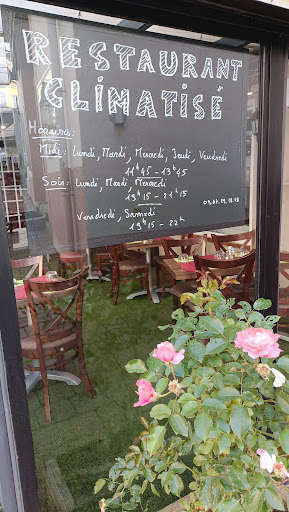 RESTAURANT
CLİMATİSÉ
Horaires :
Midi : Lundi, Mardi, Mercredi, Jeudi, Vendredi
11h45 - 13h45
Soir : Lundi, Mardi, Mercredi
19h15 - 21h15
Vendredi, Samedi
19h15 - 22h